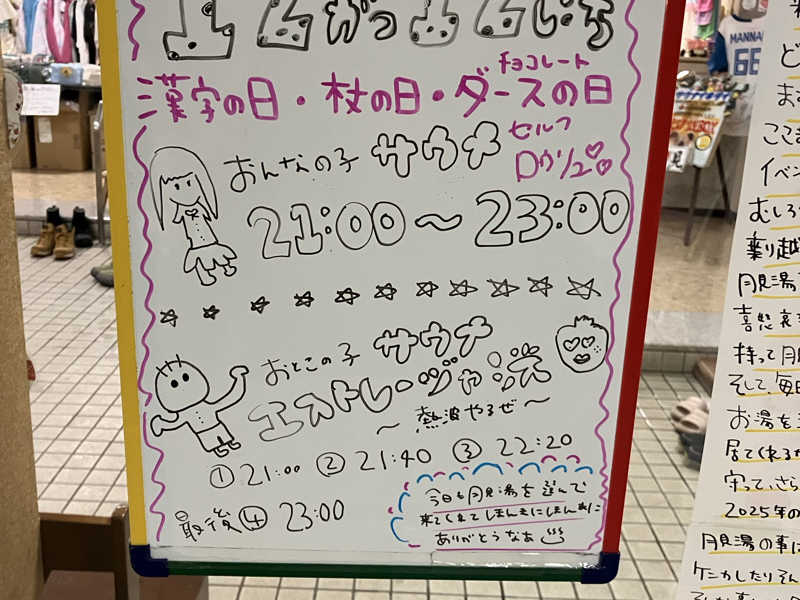 12がつ12にち
漢字の日・杖の日・ダースの日
チョコレート
おんなの子 サウナ
セルフ
ロウリュ
21:00～23:00
おとこの子 サウナ
エストレージャ
～熱波やるぜ～
① 21:00 ② 21:40 ③ 22:20
最後④ 23:00
今日も月見湯を選んで
来てくれてしまんきにしまんきに
ありがとうなあ
MANNA
66
ど
ま
ここま
イベン
むしろ
乗り越
月見湯
喜怒哀
持って月
そして、毎日
お湯を
居てくれるか
守って、さら
2025年の
月見湯の事は
ケニカしたりそん